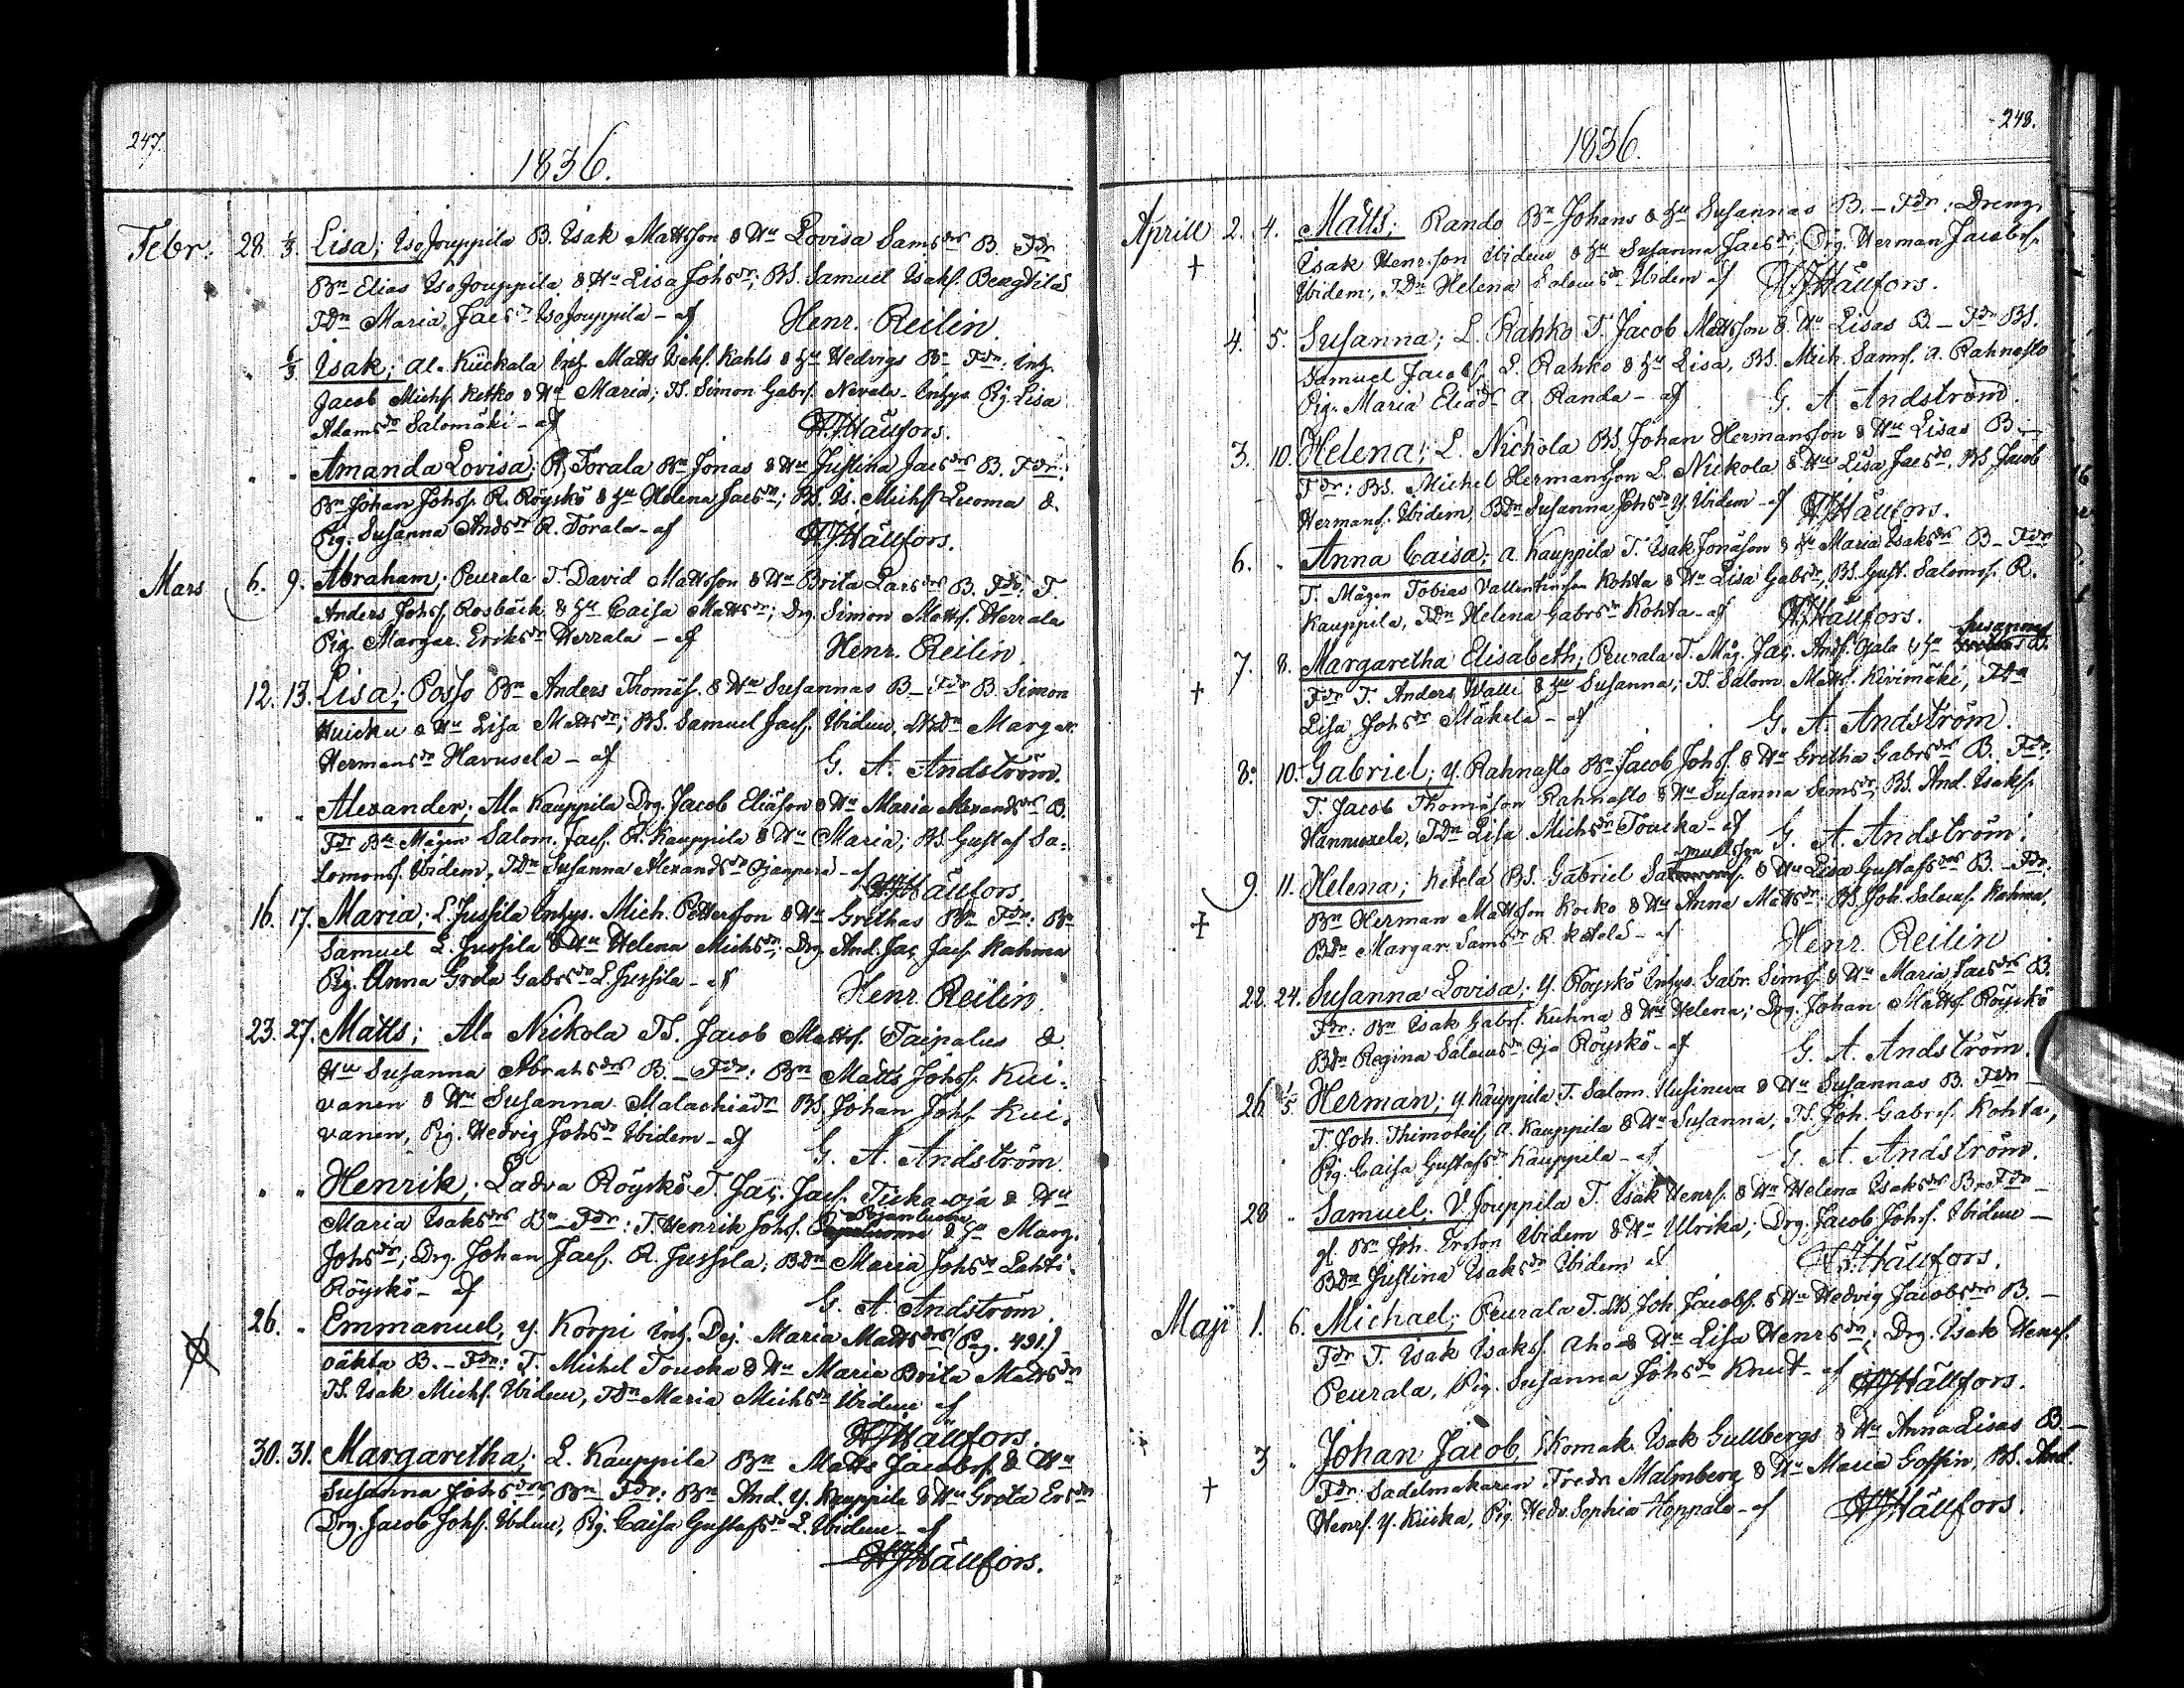 247.
1836.
Febr. 28. 1/3. Lisa; Iso Jouppila B. Isak Mattsson & Hu Lovisa Samsdrs B. Fdr
Bn Elias Iso Jouppila & Hu Lisa Johsdr; BS. Samuel Isaks. Bengtila
TDn Maria Jacsdr Iso Jouppila - af Henr. Reilin.
" 1/3. Isak; Al. Kiickala Inh. Matts Isaks. Kahls & Hu Hedvigs Bn, Fdr: Inh.
Jacob Michs. Ketko & Hu Maria; TS. Simon Gabrs. Nevala - Inhys Pig. Lisa
Adamsdr Salomäki - af HJHällfors.
" " Amanda Lovisa; R. Torala Bn Jonas & Hu Justina Jacsdrs B. Fdr:
Bn Johan Johss. R. Röyskö & Hu Helena Jacsdr; BS. Is. Michs. Luoma &
Pig. Susanna Andsdr R. Torala - af HJHällfors.
Mars 6. 9. Abraham; Peurala T. David Mattsson & Hu Brita Larsdrs B. Fdr: T.
Anders Johss. Rosbäck & Hu Caisa Mattsdr; Drg. Simon Matts. Herrala
Pig. Margar. Eriksdr Herrala - af Henr. Reilin.
12. 13. Lisa; Posso Bn Anders Thomäs. & Hu Susannas B - Fdr B. Simon
Huicku & Hu Lisa Mattsdr; BS. Samuel Jacs. Ibidem, Margar.
Hermansdr Havusela - af G. A. Andström.
" " Alexander; Ala Kauppila Drg. Jacob Eliäson & Hu Maria Alexandsdrs B.
Fdr Bn Mågen Salom. Jacs. A. Kauppila & Hu Maria; BS. Gustaf Sa-
lomons. Ibidem, TDn Susanna Alexandsdr Ojanperä - af HJHällfors.
16. 17. Maria; L. Jussila Inhys. Mich. Pettersson & Hu Grethas Bn Fdr: Bn
Samuel L. Jussila & Hu Helena Michsdr; Drg. And. Jac. Jacs. Kahma
Pig. Anna Greta Gabrsdr L. Jussila - af Henr. Reilin.
23. 27. Matts; Ala Nickola TS. Jacob Matts. Taipalus &
Hu Susanna Abrahsdrs B. - Fdr: Bn Matts Johss. Kui-
vanen & Hu Susanna Malachiädr BS. Johan Johs. Kui-
vanen, Pig. Hedvig Johsdr Ibidem - af G. A. Andström.
" " Henrik; Ladva Röyskö T. Jac. Jacs. Tickaoja & Hu
Maria Isaksdrs Bn Fdr: T. Henrik Johs. Ojanluoma & Hu Marg.
Johsdr; Drg. Johan Jacs. A. Jussila, BDn Maria Johsdr Lahti-
Röyskö - af G. A. Andström
26. " Emmanuel, y. Korpi Inh. Dej. Maria Mattsdrs (Pag. 491.)
oäkta B. - Fdr: T. Michel Toucka & Hu Maria Brita Mattsdr
TS. Isak Michs. Ibidem, TDn Maria Michsdr Ibidem af HJHällfors.
30. 31. Margaretha; L. Kauppila Bn Matts Jacobs. & Hu
Susanna Johsdrs Bn Fdr: Bn And. Y. Kauppila & Hu Greta Ersdr
Drg. Jacob Johs. Ibdem, Pig. Caisa Gustafsdr L. Ibidem - af
HJHällfors.
248.
1836.
Aprill 2. 4. Matts; Rando Bn Johans & Hu Susannas B. - Fdr: Dreng.
Isak Henr.son Ibidem & Hu Susanna Jacsdr; Drg. Herman Jacobss.
Ibidem, TDn Helena Ibidem af HJHällfors.
4. 5. Susanna; L. Rahko T. Jacob Mattsson & Hu Lisas B. - Fdr BS.
Samuel Jacobs. L. Rahko & Hu Lisa, BS. Mich. Sams. A. Rahnasto
Pig. Maria Eliädr A. Randa - af G. A. Andström.
3. 10. Helena; L. Nickola BS. Johan Hermansson & Hu Lisas B. -
Fdr: BS. Michel Hermansson L. Nickola & Hu Lisa Jacsdr, BS. Jacob
Hermans. Ibidem, BDn Susanna Johsdr Y. Ibidem - af HJHällfors.
6. " Anna Caisa; A. Kauppila T. Isak Jonäson & Hu Maria Isaksdrs B - Fdr
T. Mågen Tobias Vallentinson Kohta & Hu Lisa Gabsdr, BS. Gust. Saloms. R.
Kauppila, TDn Helena Gabrsdr Kohta - af HJHällfors.
7. 8. Margaretha Elisabeth; Peurala T. Måg. Jac. Ands. Ojala & Hu Susannas B.
Fdr T. Anders Walli & Hu Susanna; TS. Salom. Matts. Kivimäki, TDn
Lisa Johsdr Mäkelä - af G. A. Andström.
8. 10. Gabriel; y. Rahnasto Bn Jacob Johs. & Hu Gretha Gabrsdrs B. Fdr:
T. Jacob Thomäson Rahnasto & Hu Susanna Simsdr; BS. And. Isakss.
Hannuxela, TDn Lisa Michsdr Toucka - af G. A. Andström.
9. 11. Helena; Ketola BS. Gabriel Samuelsson & Hu Lisa Gustafsdrs B. - Fdr:
Bn Herman Mattsson Kocko & Hu Anna Mattsdr; BS. Joh. Kahma,
BDn Margar. Samsdr R. Ketola - af Henr. Reilin
22. 24. Susanna Lovisa; y. Röyskö Inhys. Gabr. Sims. & Hu Maria Jacsdrs B.
Fdr: Bn Isak Gabrs. Kuhna & Hu Helena; Drg. Johan Matts. Röyskö
BDn Regina Oja Röyskö - af G. A. Andström.
26. 1/5 Herman; y. Kauppila T. Salom. Uusineva & Hu Susannas B. Fdr
T. Joh. Thimoteis. A. Kauppila & Hu Susanna, TS. Joh. Gabrs. Kohta,
Pig. Caisa Gustafsdr Kauppila - af G. A. Andström.
28 " Samuel; V. Jouppila T. Isak Henrs. & Hu Helena Isaksdrs Bn Fdr -
gl. Bn Joh. Ersson Ibidem & Hu Ulrika; Drg. Jacob Johs. Ibidem -
BDn Justina Isaksdr Ibidem af HJHällfors.
Maji 1. 6. Michael; Peurala T. Joh. Jacobs. & Hu Hedvig Jacobsdrs B. -
Fdr T. Isak Isakss. Aho & Hu Lisa Henrsdr; Drg. Isak Henrs.
Peurala, Pig. Susanna Johsdr Knut - af HJHällfors.
3 " Johan Jacob, Skomak. Isak Gullbergs & Hu Anna Lisas B -
Fdr: Sadelmakaren Fredr. Malmberg & Hu Maria Goffin, BS. And.
Henrs. Y. Kiicka, Pig Hedv. Sophia Hoppala - af HJHällfors.